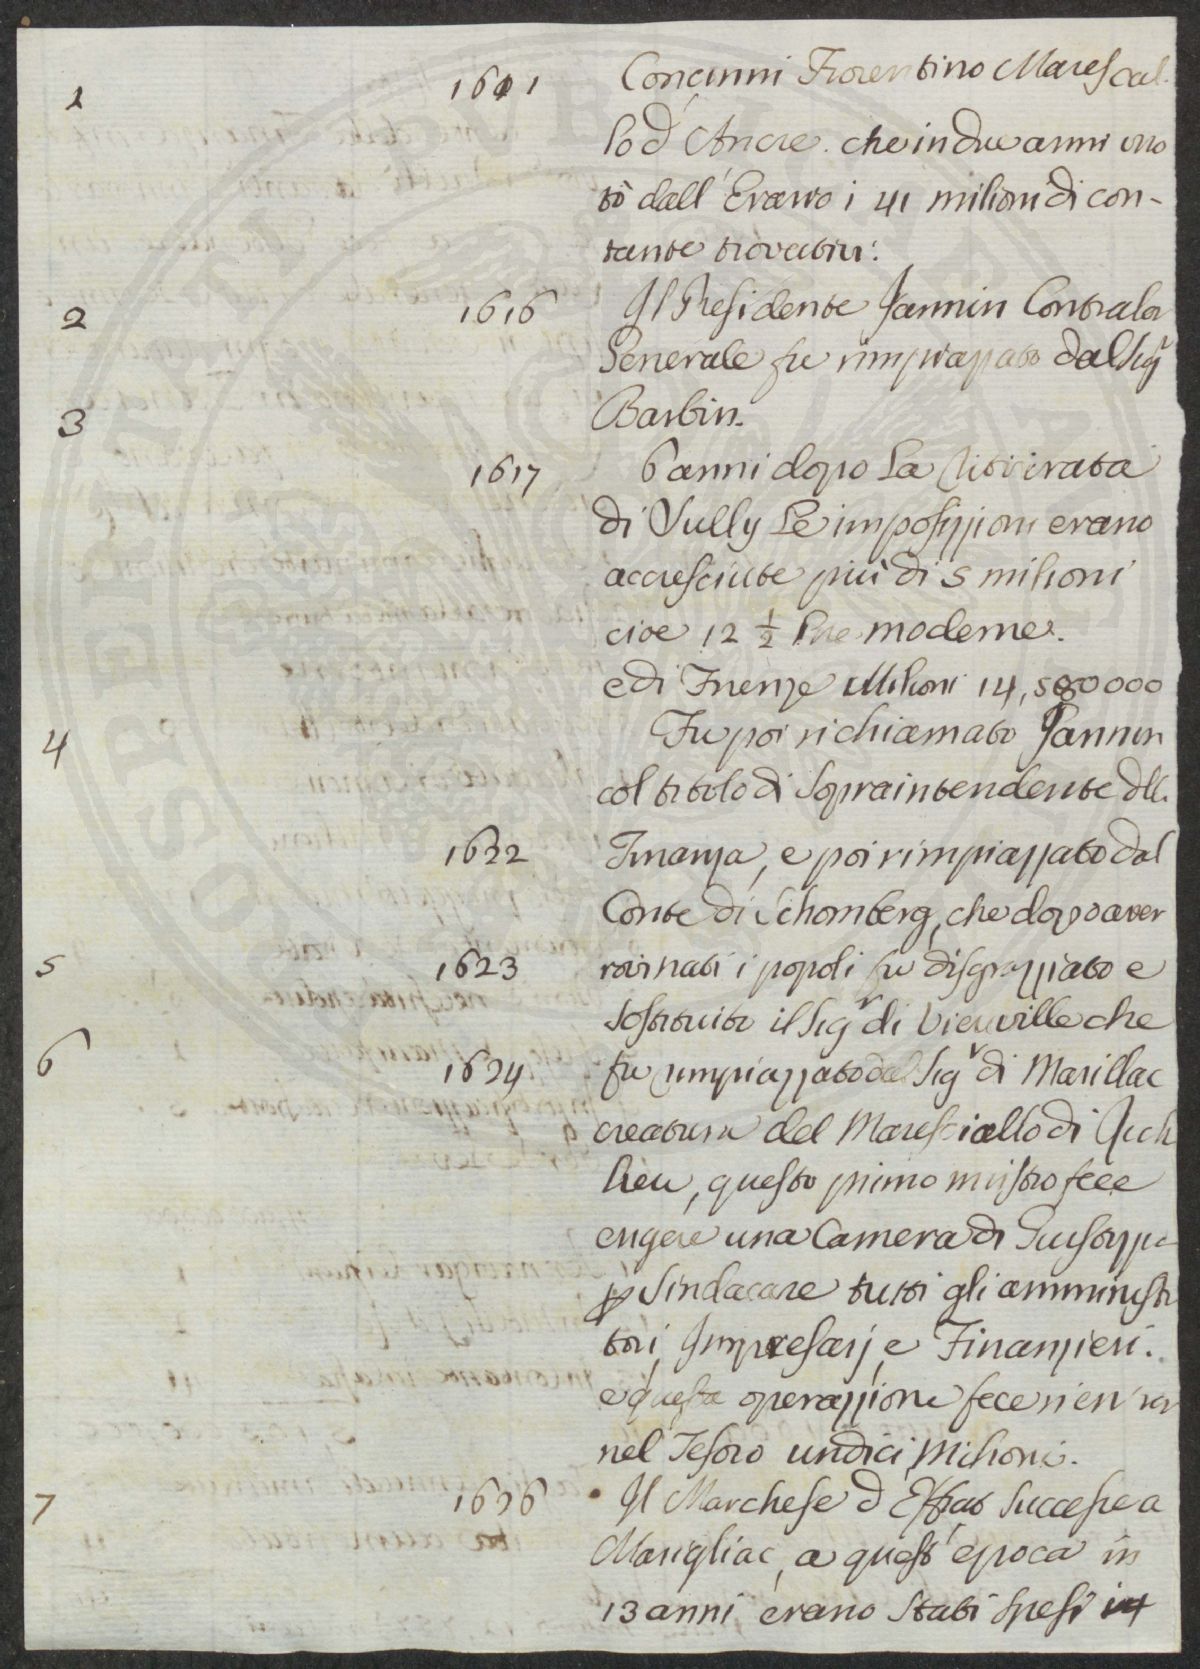 1 1611 Concinni Fiorentino Marescal
lo d'Ancre. che in due anni vuo
tò dall'Erario i 41 milioni di con-
tante trovativi:
2 1616 Il Presidente Jannin Contralor
Generale fu rimpiazzato dal Sigr
3 Barbin.
1617 6 anni dopo la ritirata
di Sully le imposizzioni erano
accresciute più di 5 milioni
cioe 12 ½ lire moderne.
e di Firenze Milioni 14,580000
4 Fu poi richiamato Jannin
col titolo di Sopraintendente dlla
1622 Finanza, e poi rimpiazzato dal
Conte di Schomberg, che dopo aver
5 1623 rovinati i popoli fu disgrazziato e
sostituito il Sigr di Vieuville che
6 1624 fu rimpiazzato dal Sigr di Marillac
creatura del Maresciallo di Rich
lieu, questo primo mistro fece
erigere una Camera di
p sindacare tutti gli amministra
tori, Impresarj, e Finanzieri.
e questa operazzione fece rientrar
nel Tesoro undici Milioni.
7 1626 Il Marchese d'Effiat successe a
Marigliac, a quest'epoca in
13 anni erano stati spesi